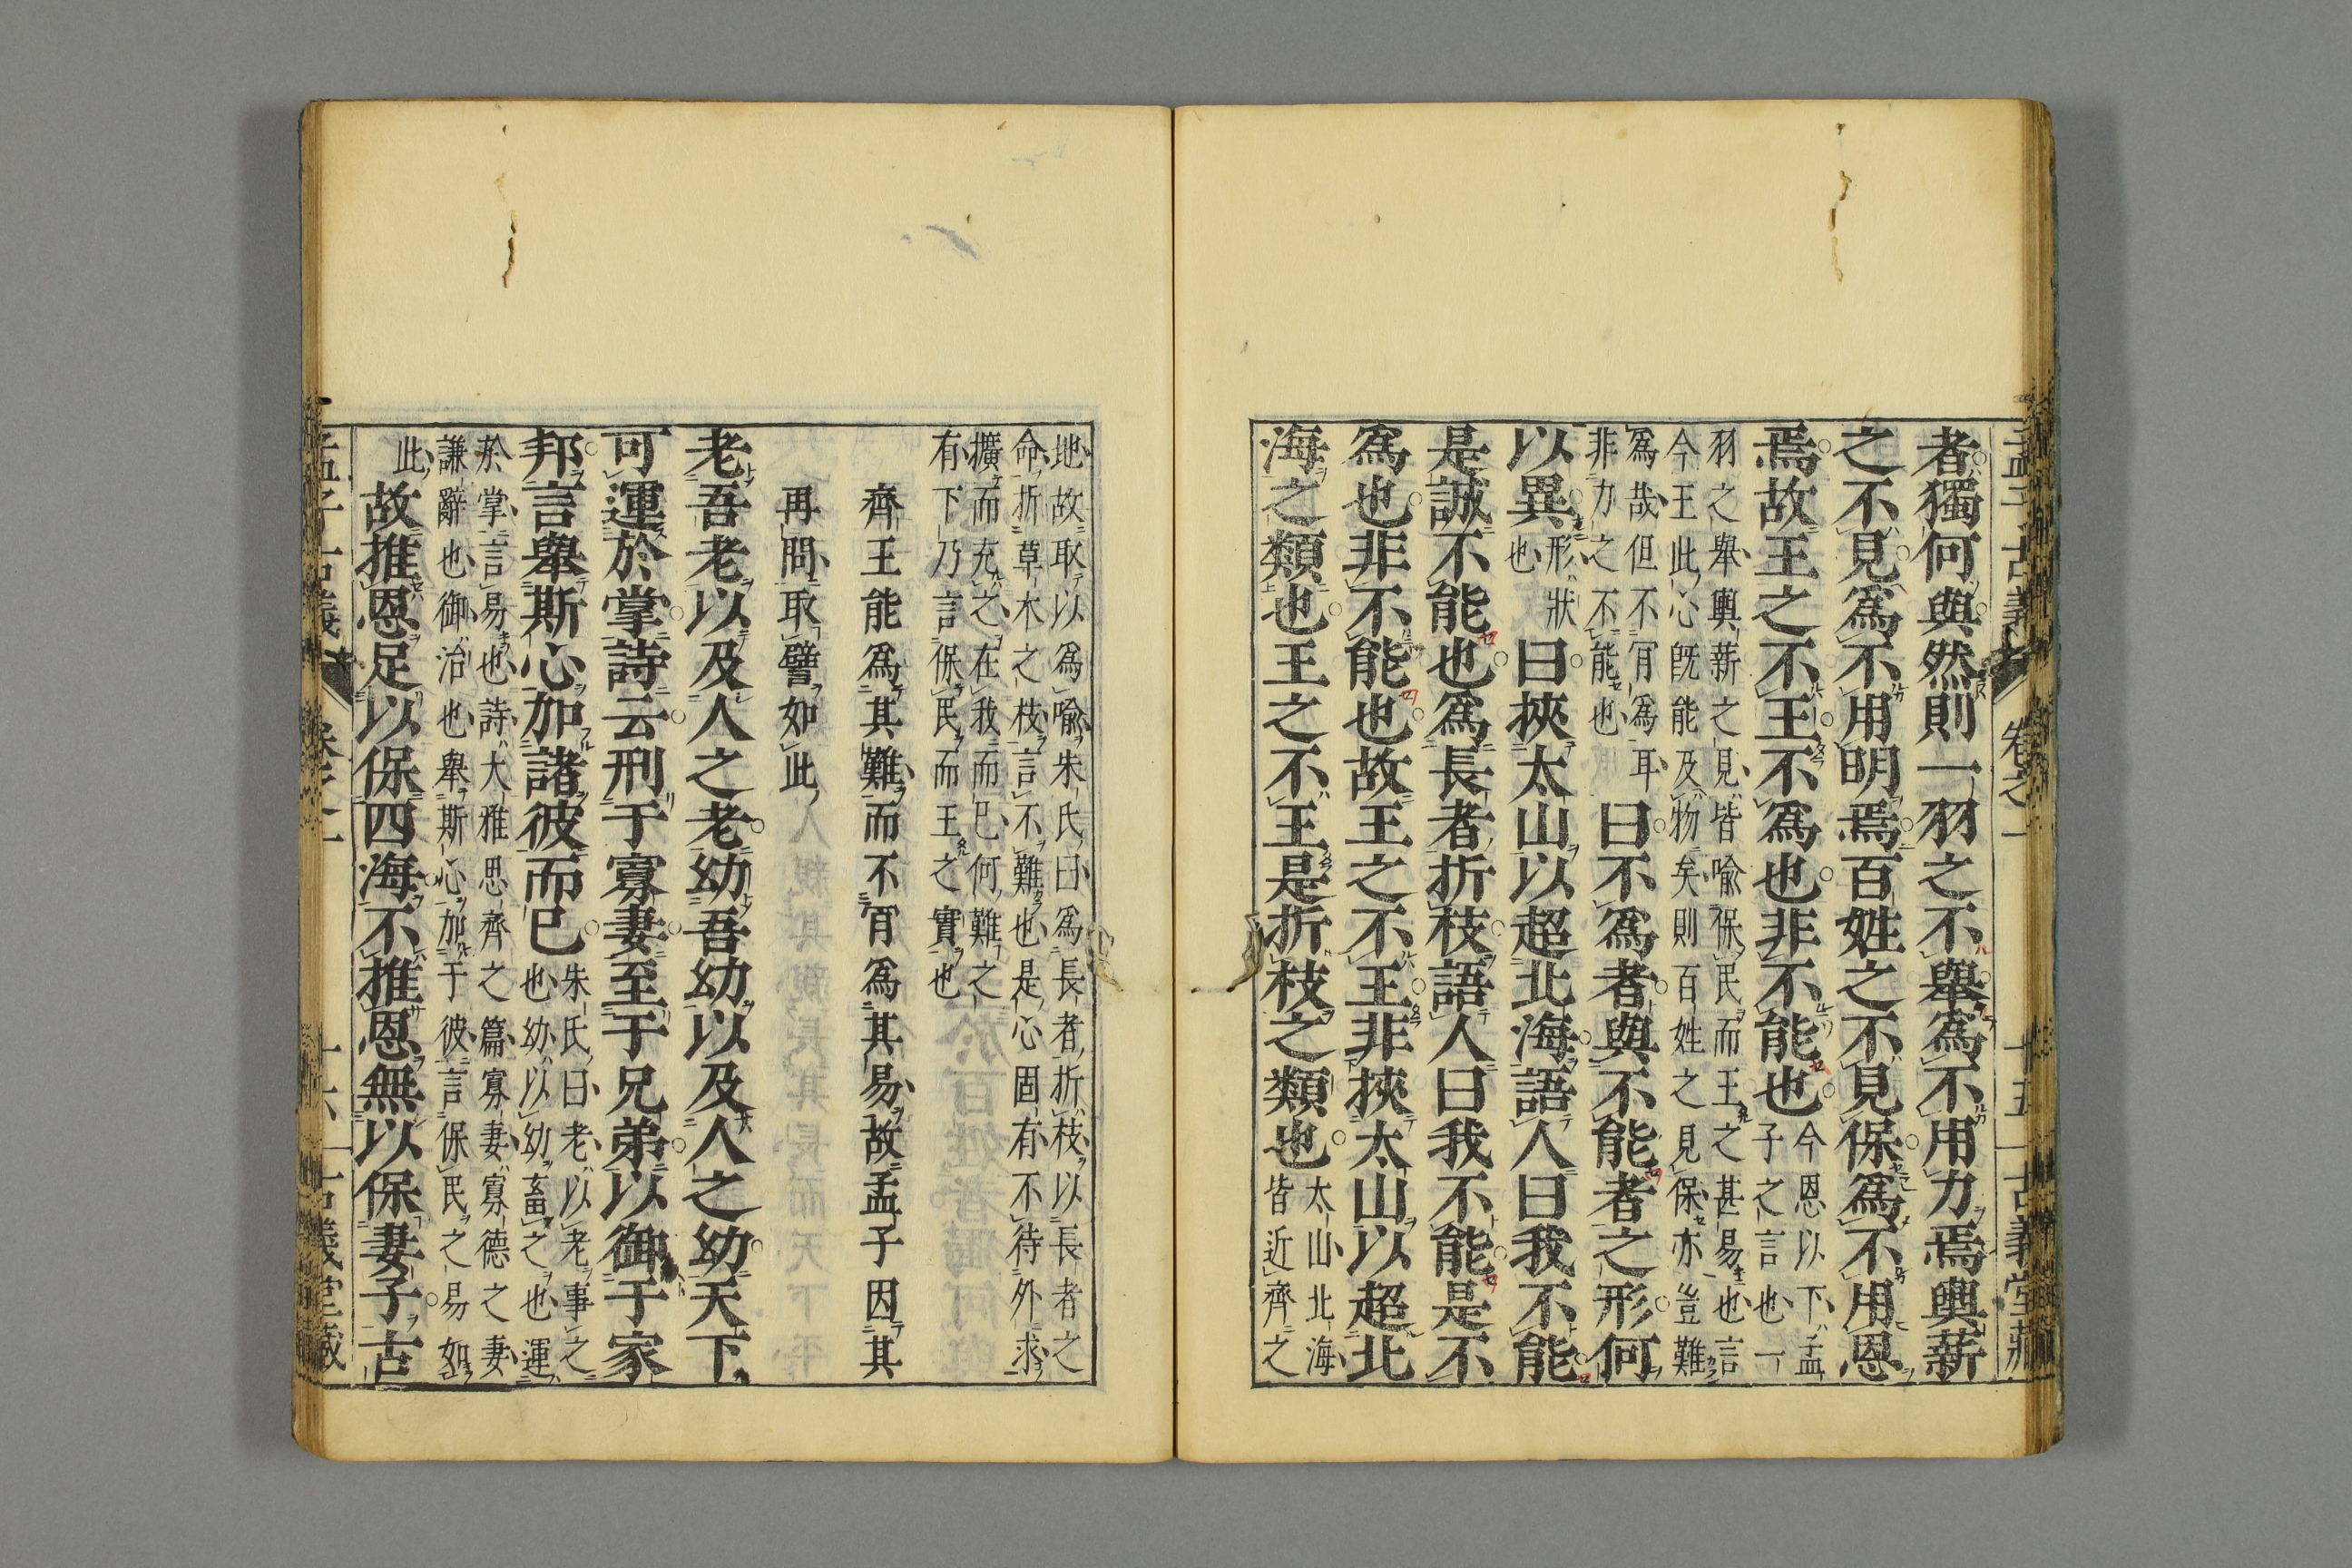 孟子古義 卷之一 十五 古義堂藏
者獨何與然則一羽之不舉爲不用力焉輿薪
之不見爲不用明焉百姓之不見保爲不用恩
焉故王之不王不爲也非不能也今恩以下孟
子之言也一
羽之舉輿薪之見皆喩保民而王之甚易也言
今王此心旣能及物矣則百姓之見保亦豈難
爲哉但不肎爲耳
非力之不能也
曰不爲者與不能者之形何
以異形狀
也
曰挾太山以超北海語人曰我不能
是誠不能也爲長者折枝語人曰我不能是不
爲也非不能也故王之不王非挾太山以超北
海之類也王之不王是折枝之類也太山北海
皆近齊之
地故取以爲喩朱氏曰爲長者折枝以長者之
命折草木之枝言不難也是心固有不待外求
擴而充之在我而已何難之
有下乃言保民而王之實也
齊王能爲其難而不肎爲其易故孟子因其
再問取譬如此
老吾老以及人之老幼吾幼以及人之幼天下
可運於掌詩云刑于寡妻至于兄弟以御于家
邦言舉斯心加諸彼而已朱氏曰老以老事之
也幼以幼畜之也運
於掌言易也詩大雅思齊之篇寡妻寡德之妻
謙辭也御治也舉斯心加于彼言保民之易如
此
故推恩足以保四海不推恩無以保妻子古
孟子古義 卷之一 十六 古義堂藏